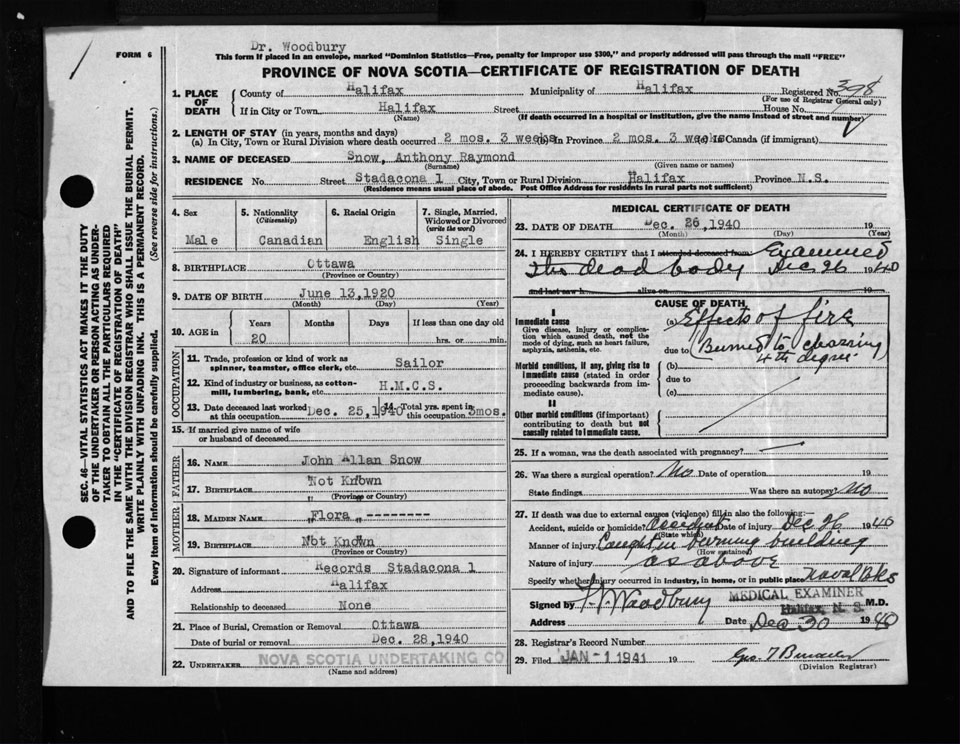 Dr. Woodbury
FORM 6
This form if placed in an envelope, marked "Dominion Statistics—Free, penalty for improper use $300," and properly addressed will pass through the mail "FREE"
PROVINCE OF NOVA SCOTIA—CERTIFICATE OF REGISTRATION OF DEATH
1. PLACE OF DEATH
County of Halifax Municipality of Halifax Registered No. 398
(For use of Registrar General only)
If in City or Town Halifax Street House No.
(Name) (If death occurred in a hospital or institution, give the name instead of street and number)
2. LENGTH OF STAY (in years, months and days)
(a) In City, Town or Rural Division where death occurred 2 mos. 3 weeks (b) In Province 2 mos. 3 weeks (c) In Canada (if immigrant)
3. NAME OF DECEASED Snow, Anthony Raymond
(Surname) (Given name or names)
RESIDENCE No. Street Stadacona 1 City, Town or Rural Division Halifax Province N.S.
(Residence means usual place of abode. Post Office Address for residents in rural parts not sufficient)
4. Sex
Male
5. Nationality
(Citizenship)
Canadian
6. Racial Origin
English
7. Single, Married, Widowed or Divorced
(write the word)
Single
8. BIRTHPLACE Ottawa
(Province or Country)
9. DATE OF BIRTH June 13, 1920
(Month) (Day) (Year)
10. AGE in
Years Months Days If less than one day old
20 hrs. or min.
OCCUPATION
11. Trade, profession or kind of work as spinner, teamster, office clerk, etc. Sailor
12. Kind of industry or business, as cotton-mill, lumbering, bank, etc. H.M.C.S.
13. Date deceased last worked at this occupation Dec. 25, 1940
14. Total yrs. spent in this occupation 3mos.
15. If married give name of wife or husband of deceased
FATHER
16. NAME John Allan Snow
17. BIRTHPLACE Not Known
(Province or Country)
MOTHER
18. MAIDEN NAME "Flora" ---------
19. BIRTHPLACE Not Known
(Province or Country)
20. Signature of informant Records Stadacona 1
Address Halifax
Relationship to deceased None
21. Place of Burial, Cremation or Removal Ottawa
Date of burial or removal Dec. 28, 1940
22. UNDERTAKER NOVA SCOTIA UNDERTAKING CO
(Name and address)
MEDICAL CERTIFICATE OF DEATH
23. DATE OF DEATH Dec. 26, 1940 19
(Month) (Day) (Year)
24. I HEREBY CERTIFY that I attended deceased from Examined
the dead body Dec 26 1940
and last saw h alive on 19
CAUSE OF DEATH
I
Immediate cause
Give disease, injury or complication which caused death, not the mode of dying, such as heart failure, asphyxia, asthenia, etc.
(a) Effects of fire
due to (Burned to charring
4th degree)
Morbid conditions, if any, giving rise to immediate cause (stated in order proceeding backwards from immediate).
(b)
due to
(c)
II
Other morbid conditions (if important) contributing to death but not causally related to immediate cause.
25. If a woman, was the death associated with pregnancy?
26. Was there a surgical operation? No Date of operation 19
State findings Was there an autopsy? No
27. If death was due to external causes (violence) fill in also the following:
Accident, suicide or homicide? Accident Date of injury Dec 26 1940
(State which)
Manner of injury Caught in burning building
(How sustained)
Nature of injury as above
Specify whether injury occurred in industry, in home, or in public place Naval Bks
Signed by Woodbury M.D.
MEDICAL EXAMINER
Halifax, N. S.
Address Date Dec 30 1940
28. Registrar's Record Number
29. Filed JAN -1 1941 19
(Division Registrar)
SEC. 46—VITAL STATISTICS ACT MAKES IT THE DUTY
OF THE UNDERTAKER OR PERSON ACTING AS UNDERTAKER TO OBTAIN ALL THE PARTICULARS REQUIRED
IN THE "CERTIFICATE OF REGISTRATION OF DEATH"
AND TO FILE THE SAME WITH THE DIVISION REGISTRAR WHO SHALL ISSUE THE BURIAL PERMIT.
WRITE PLAINLY WITH UNFADING INK. THIS IS A PERMANENT RECORD.
Every item of information should be carefully supplied. (See reverse side for instructions.)